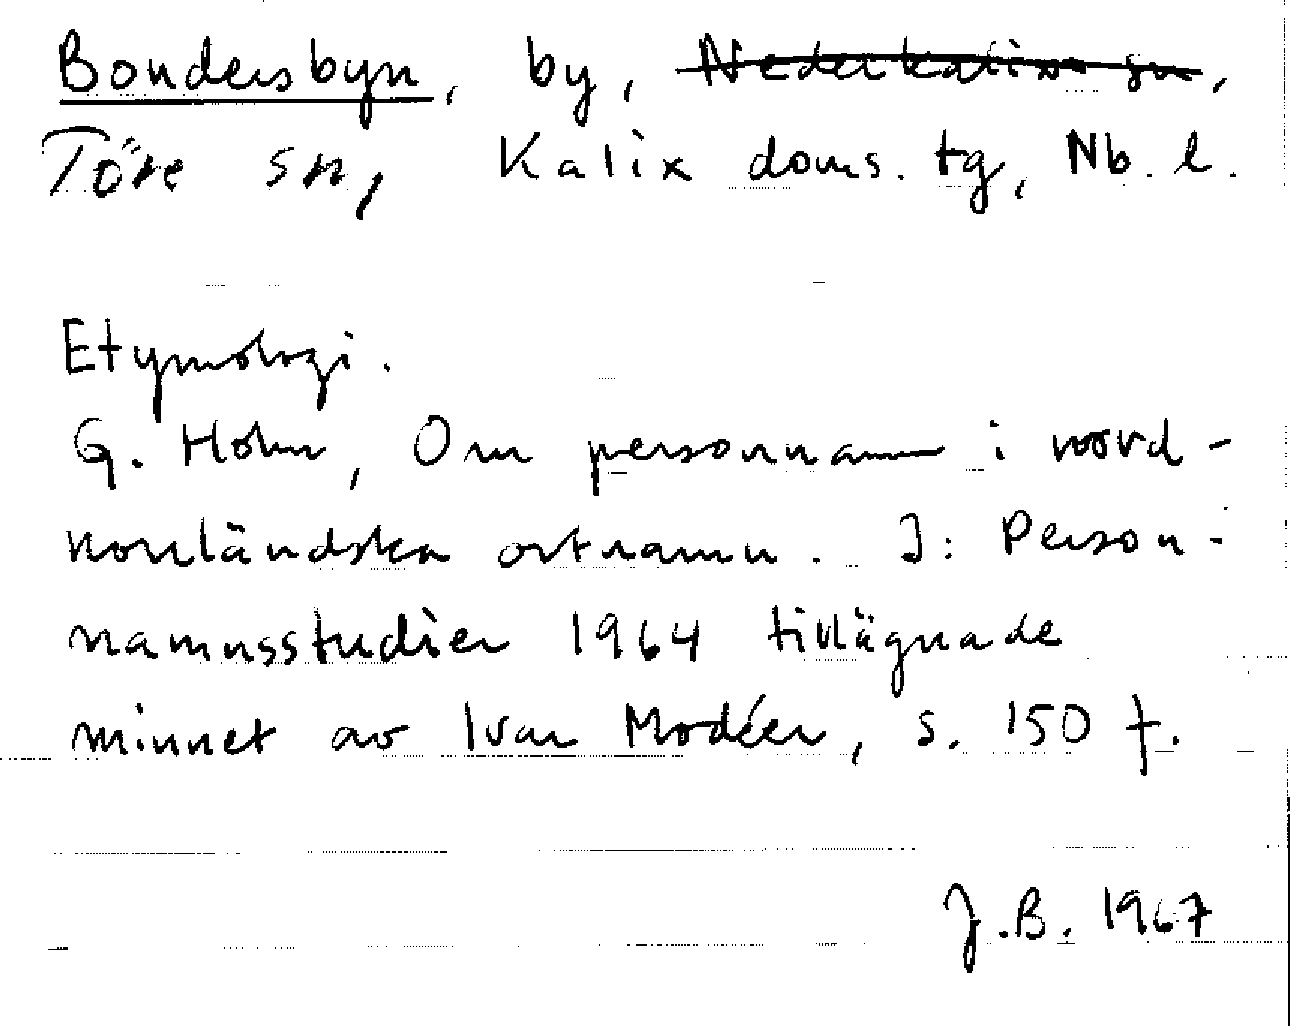 Bondersbyn, by, Nederkalix sn,
Töre sn, Kalix doms. tg, Nb. l.
Etymologi.
G. Holm, Om personnamn i nord-
norrländska ortnamn. I: Person-
namnsstudier 1964 tillägnade
minnet av Ivar Modéer, s. 150 f.
J.B. 1967